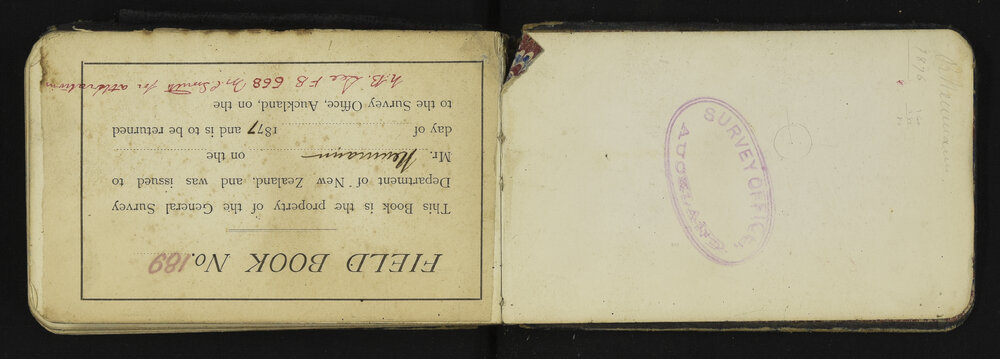 FIELD BOOK No. 189
This Book is the property of the General Survey
Department of New Zealand, and was issued to
Mr. Neumann on the
day of 1877 and is to be returned
to the Survey Office, Auckland, on the
N.B. See F B 668 M C Smith for alteration
SURVEY OFFICE,
AUCKLAND
1876